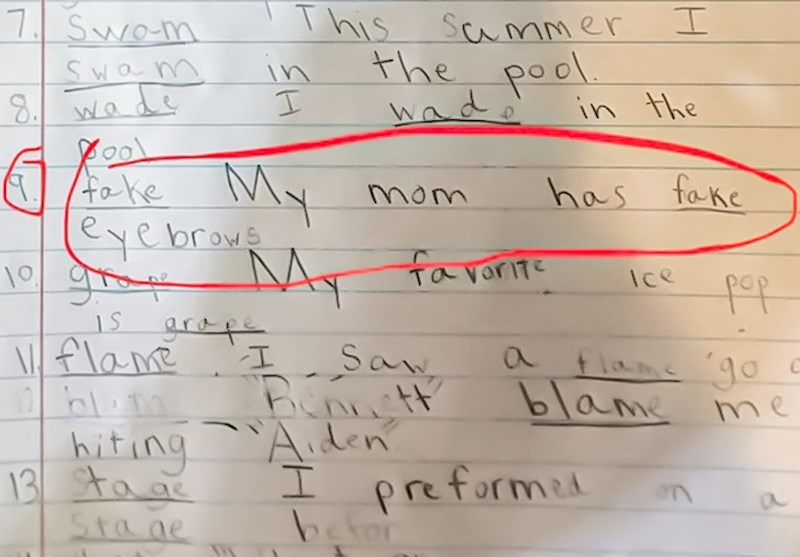 7. Swam This summer I
swam in the pool.
8. wade I wade in the
pool
9. fake My mom has fake
eyebrows
10. grape My favorite ice pop
is grape
11. flame I saw a flame go
Bennett blame me
hiting "Aiden"
13 stage I preformed on a
stage befor